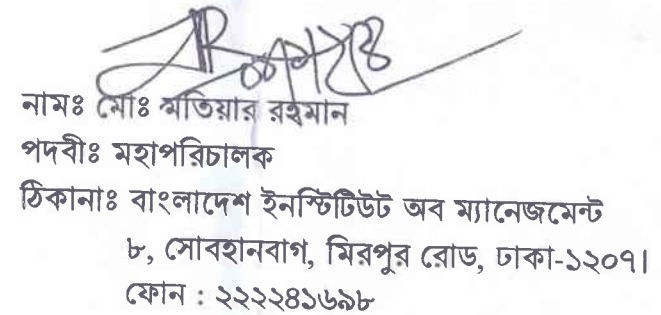 নামঃ মোঃ মতিয়ার রহমান
পদবীঃ মহাপরিচালক
ঠিকানাঃ বাংলাদেশ ইনস্টিটিউট অব ম্যানেজমেন্ট
৮, সোবহানবাগ, মিরপুর রোড, ঢাকা-১২০৭।
ফোন : ২২২২৪১৬৯৮